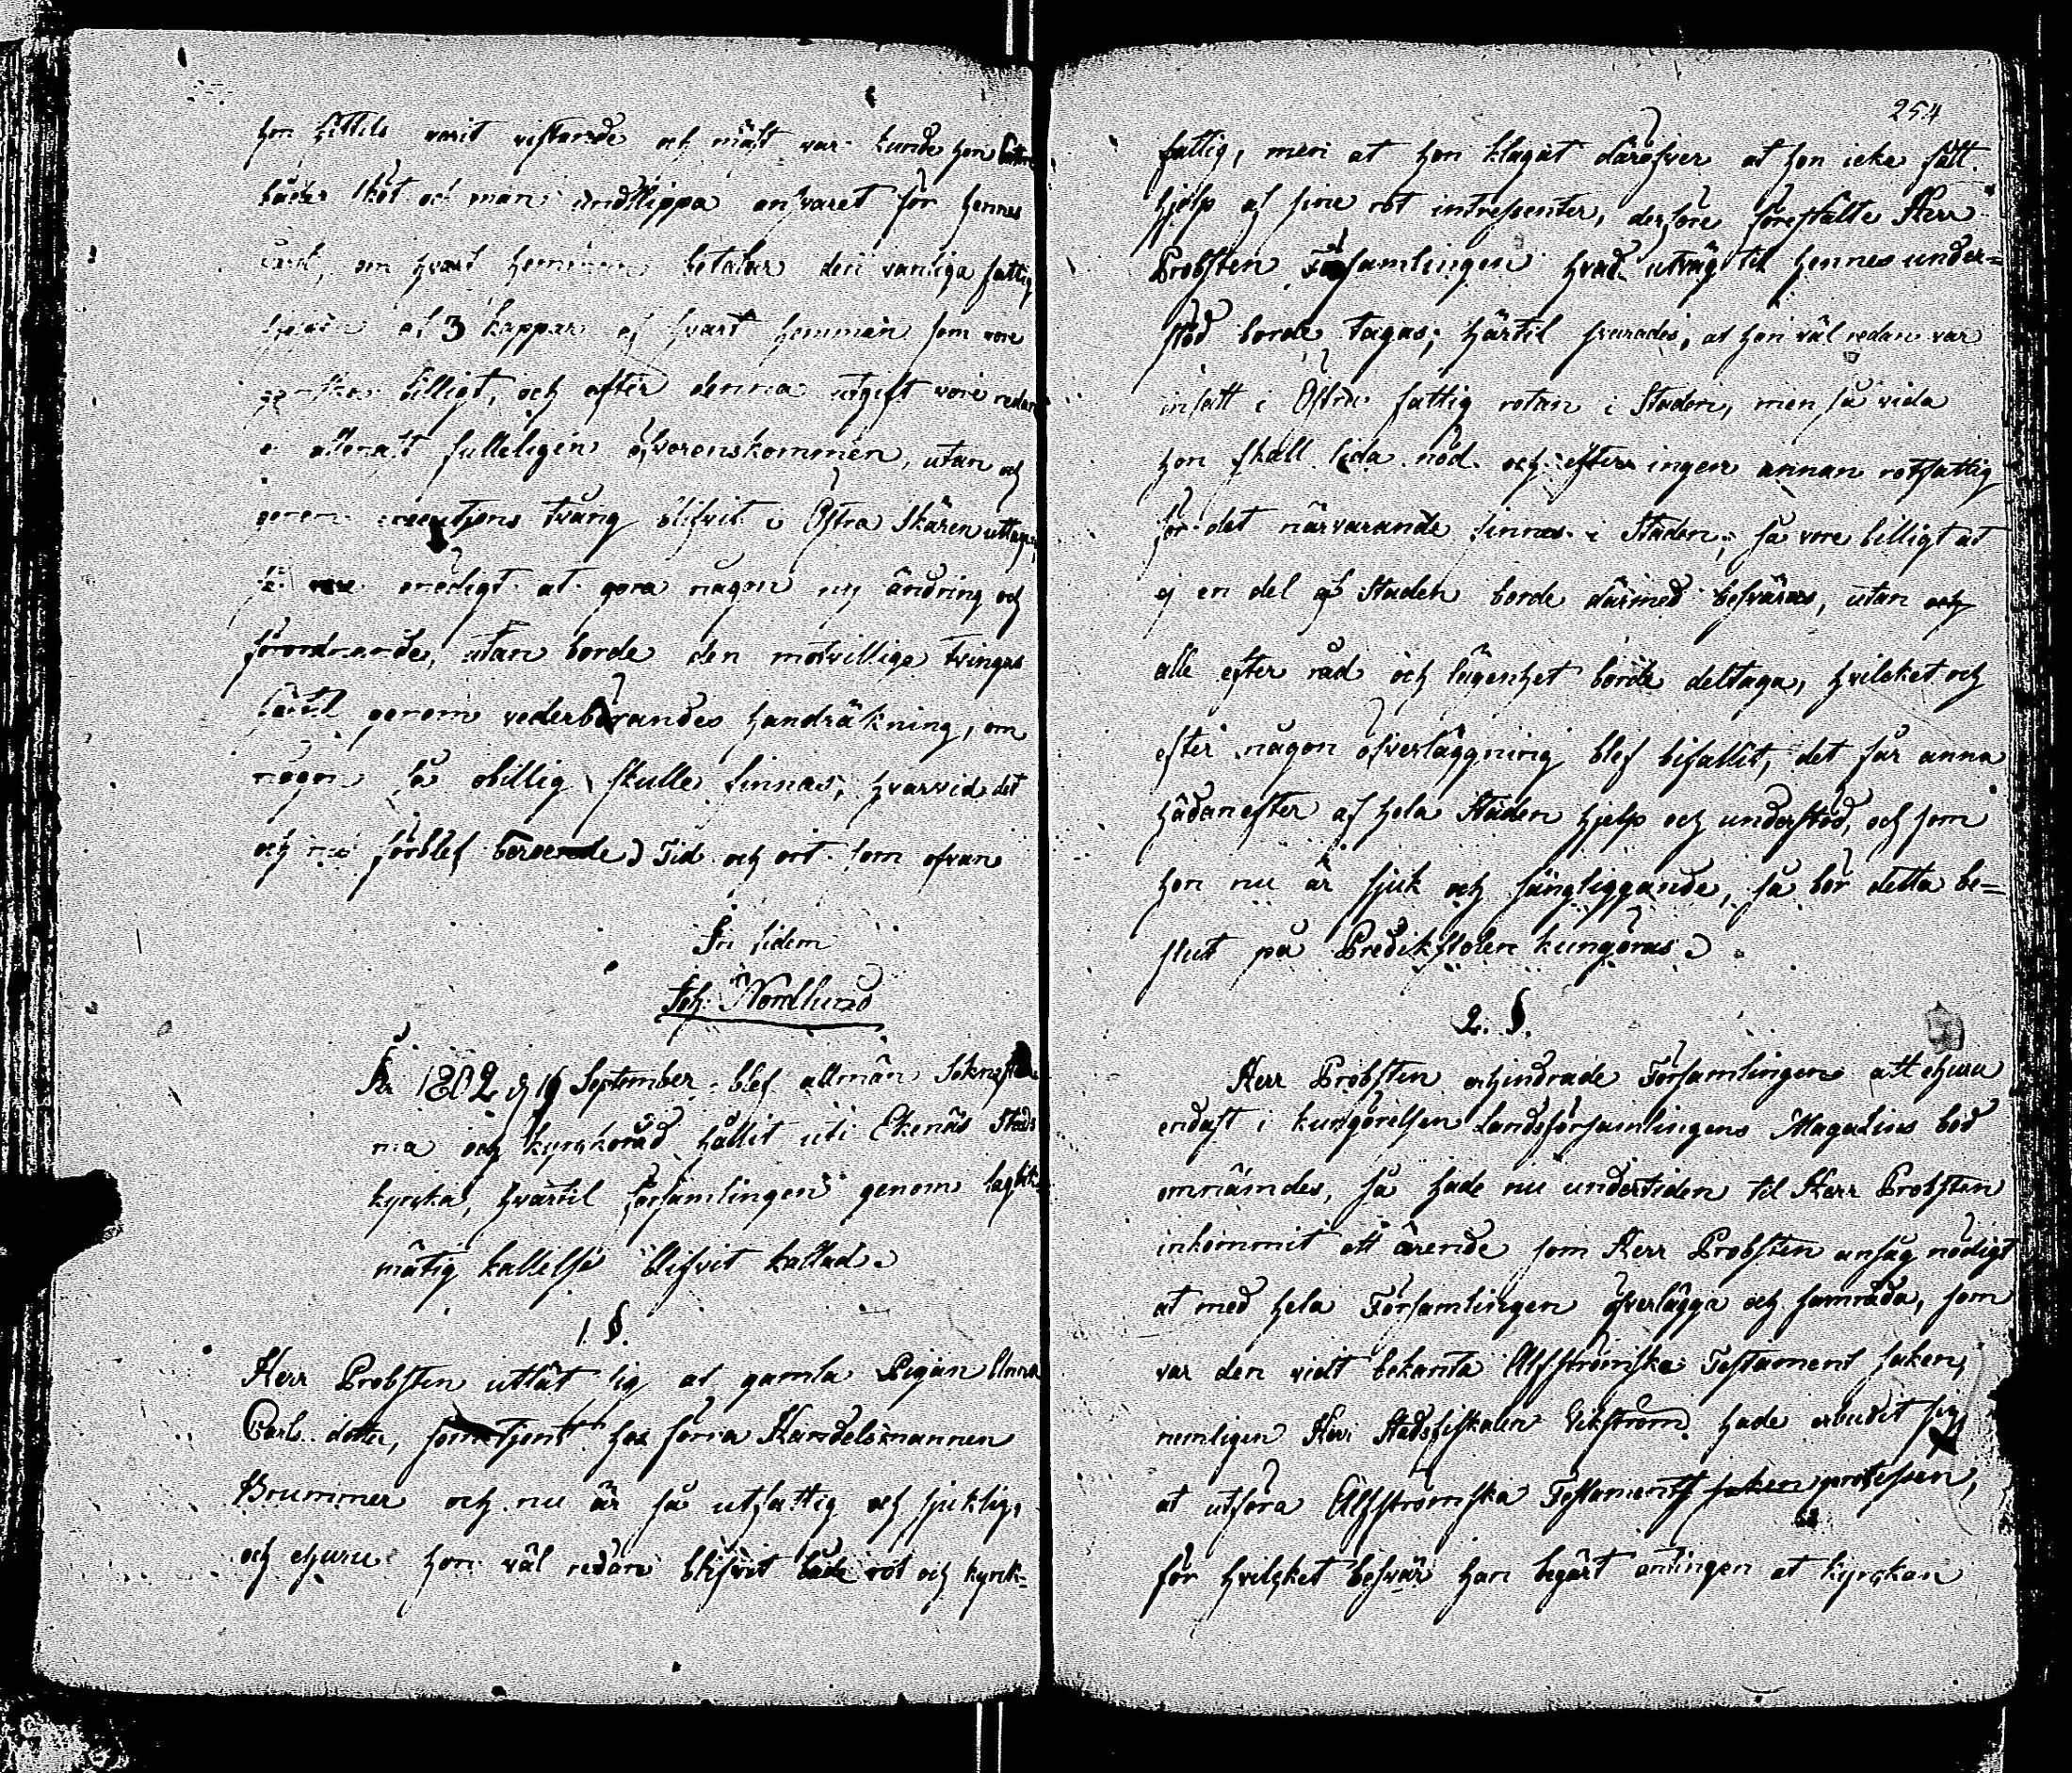 hon hittils varit vistande och mäst var kunde hon
bäde sköt och man undslippa ansvaret för hennes
vård, om hvart hemman betalar den vanliga fattig
af 3 kappar af hvart hemman som vore
billigt, och efter denna utgift vore redan
fulleligen öfverenskommen, utan och
genom executjons tvang blifvit i Östra Skären uttagen,
onödigt at göra någon ny ändring och
förordnande, utan borde den motvillige tvingas
härtil genom vederbörandes handräkning, om
någon så obillig skulle finnas, hvarvid det
och nu förblef beroende. Tid och ort som ofvan
In fidem
Joh. Nordlund
År 1802 d 19 September blef allmän Soknestäm
ma och kyrkoråd hållit uti Ekenäs Stads
kyrka, hvartil församlingen genom
mätig kallelse blifvit kallad.
1. §.
Herr Probsten utlät sig at gamla Pigan Anna
Carls dotter, som tjent hos förra Handelsmannen
Brummer och nu är så utfattig och sjuklig,
och ehuru hon väl redan blifvit både rot och kyrk-
254
fattig, men at hon klagat däröfver at hon icke fått
hjelp af sine rot intressenter, derföre förestälte Herr
Probsten Församlingen hvad utväg til hennes under-
stöd borde tagas; härtil svarades, at hon väl redan var
insatt i Östra fattig rotan i Staden, men så vida
hon skall lida nöd och efter ingen annan rotfattig
för det närvarande finnes i Staden, så vore billigt at
ej en del af Staden borde därmed besväras, utan och
alle efter råd och lägenhet borde deltaga, hvilcket och
efter någon öfverläggning blef bifallit, det får anna
hädanefter af hela Staden hjelp och understöd, och som
hon nu är sjuk och sängliggande, så bör detta be-
slut på Predikstolen kungöras.
2. §.
Herr Probsten erhindrade Församlingen att ehuru
endast i kungörelsen Landsförsamlingens Magasins bod
omnämdes, så hade nu undertiden til Herr Probsten
inkommit ett ärende som Herr Probsten ansåg nödigt
at med hela Församlingen öfverlägga och samråda, som
var den vidt bekanta Alfströmska Testament saken,
nemligen Herr Stadsfiskalen Vikström hade erbudit sig
at utföra Alfströmska Testaments saken processen,
för hvilcket besvär han begärt antingen at kyrckan